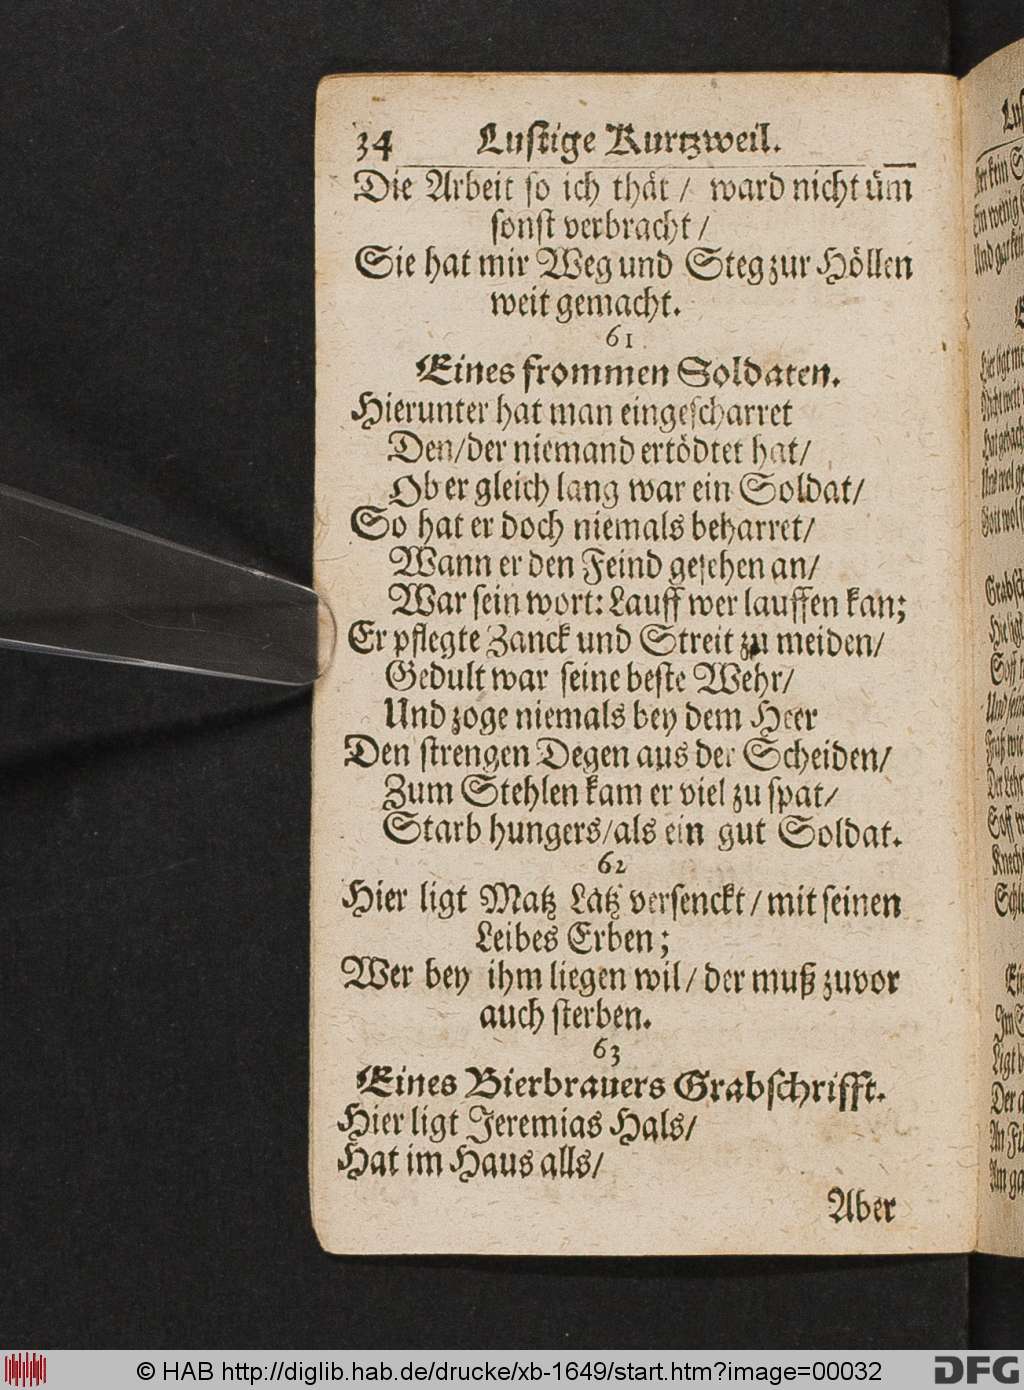 34 Lustige Kurtzweil.
Die Arbeit so ich thät / ward nicht üm
sonst verbracht /
Sie hat mir Weg und Steg zur Höllen
weit gemacht.
61
Eines frommen Soldaten.
Hierunter hat man eingescharret
Den/der niemand ertödtet hat/
Ob er gleich lang war ein Soldat/
So hat er doch niemals beharret/
Wann er den Feind gesehen an/
War sein wort: Lauff wer lauffen kan;
Er pflegte Zanck und Streit zu meiden/
Gedult war seine beste Wehr/
Und zoge niemals bey dem Heer
Den strengen Degen aus der Scheiden/
Zum Stehlen kam er viel zu spat/
Starb hungers/als ein gut Soldat.
62
Hier ligt Matz Latz versenckt / mit seinen
Leibes Erben;
Wer bey ihm liegen wil / der muß zuvor
auch sterben.
63
Eines Bierbrauers Grabschrifft.
Hier ligt Jeremias Hals/
Hat im Haus alls/
Aber
© HAB http://diglib.hab.de/drucke/xb-1649/start.htm?image=00032
DFG